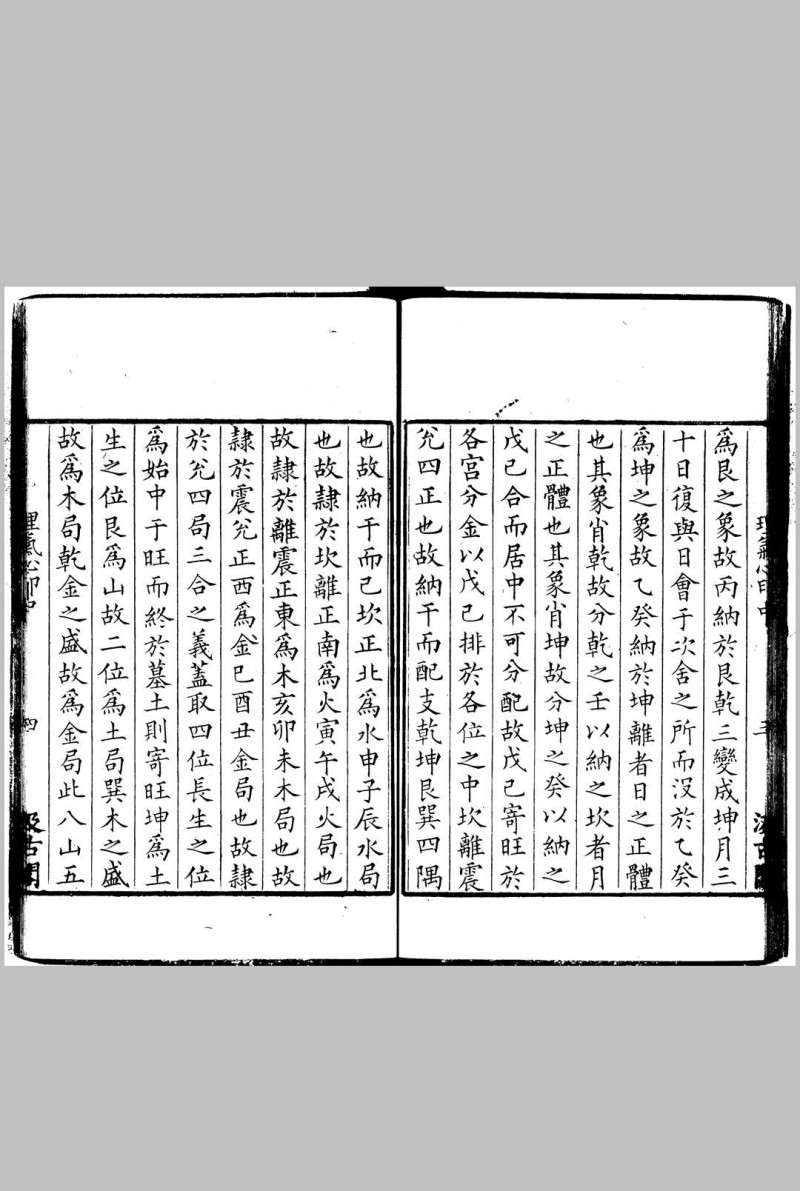 爲艮之象故丙納於艮乾三變成坤月三
十日復與日會于次舍之所而沒於乙癸
爲坤之象故乙癸納於坤離者日之正體
也其象肖乾故分乾之壬以納之坎者月
之正體也其象肖坤故分坤之癸以納之
戊己合而居中不可分配故戊己寄旺於
各宫分金以戊己排於各位之中坎離震
兊四正也故納干而配支乾坤艮巽四隅
也故納干而已坎正北爲水申子辰水局
也故隷於坎離正南爲火寅午戌火局也
故隷於離震正東爲木亥卯未木局也故
隷於震兊正西爲金巳酉丑金局也故隷
於兊四局三合之義蓋取四位長生之位
爲始中于旺而終於墓土則寄旺坤爲土
生之位艮爲山故二位爲土局巽木之盛
故爲木局乾金之盛故爲金局此八山五
理氣心印中
四
汲古閣